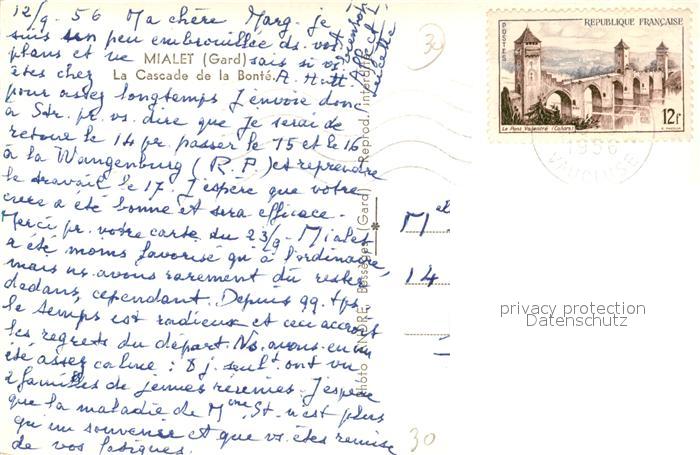 12/9. 56 Ma chère Marg. je
suis un peu embrouillée ds. vos
plans et ne sais si vs.
MIALET (Gard)
La Cascade de la Bonté.
êtes chez A. Hutt.
pour assez longtemps. J'envoie donc
à Str. pr. vs. dire que je serai de
retour le 14 pr. passer le 15 et le 16
à la Wangenburg (R.P.) et reprendre
le travail le 17. J'espère que votre
cure a été bonne et sera efficace.
Merci pr. votre carte du 23/9. Mialet
a été moins favorisé qu'à l'ordinaire,
mais ns. avons rarement dû rester
dedans, cependant. Depuis qq. tps.
le temps est radieux et ceci accroît
les regrets du départ. Ns. avons eu un
été assez calme : 8 j. seult. ont vu
2 familles de jeunes réunies. J'espère
que la maladie de Mme St. n'est plus
qu'un souvenir et que vs. êtes remise
de vos fatigues.
bientôt
Affect.
30
Photo ANDRÉ, Bessèges (Gard) — Reprod. interdite
RÉPUBLIQUE FRANÇAISE
POSTES
12f
Le Pont Valentré (Cahors)
1956
VAUCLUSE
Mel
14
privacy protection
Datenschutz
30